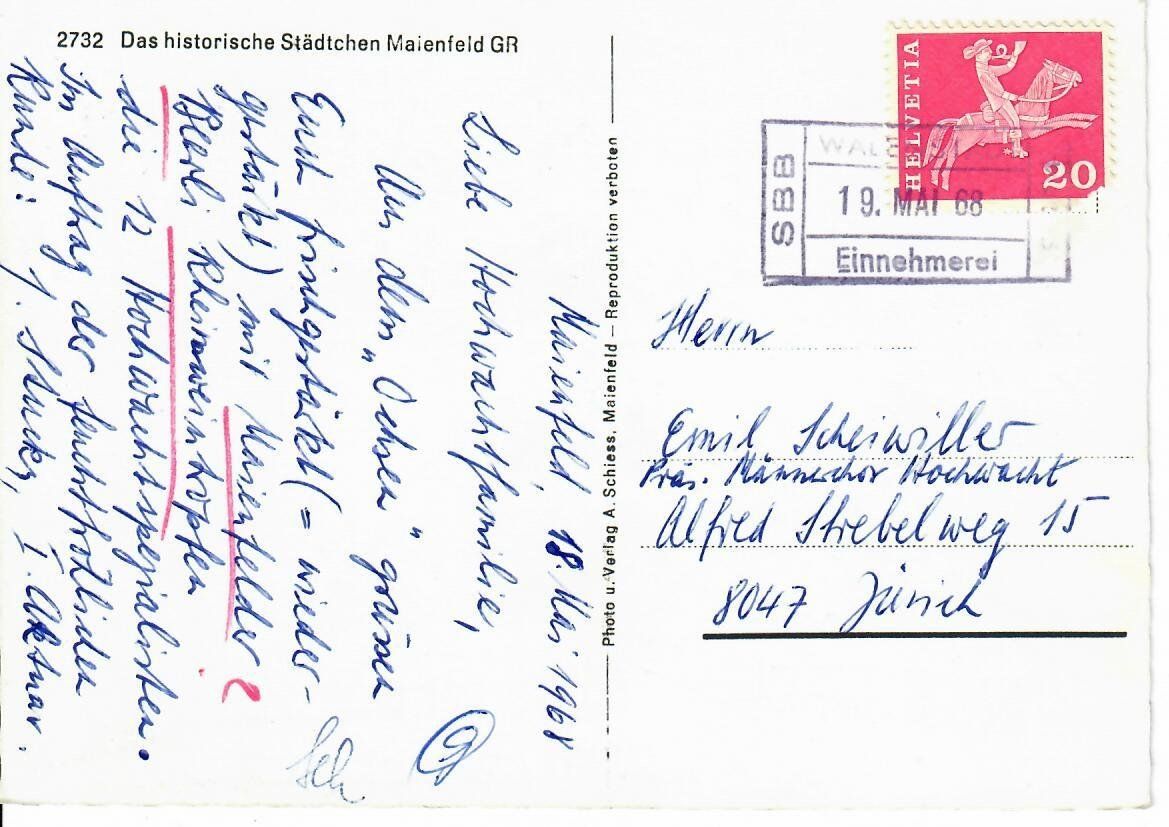 2732 Das historische Städtchen Maienfeld GR
Maienfeld, 18. Mai 1968
Liebe Hochwachtfamilie,
Aus dem „Ochsen" grüssen
Euch frischgestärkt (= wieder-
gestärkt) mit Maienfelder
Beerli Rheinweintropfen
die 12 Hochwachtspezialisten.
Im Auftrag der feuchtfröhlichen
Runde: J. Stucky, I. Aktuar.
?
Sch
Photo u. Verlag A. Schiess, Maienfeld – Reproduktion verboten
HELVETIA
20
SBB
19. MAI 68
Einnehmerei
Herrn
Emil Scheiwiller
Präs. Männerchor Hochwacht
Alfred Strebelweg 15
8047 Zürich